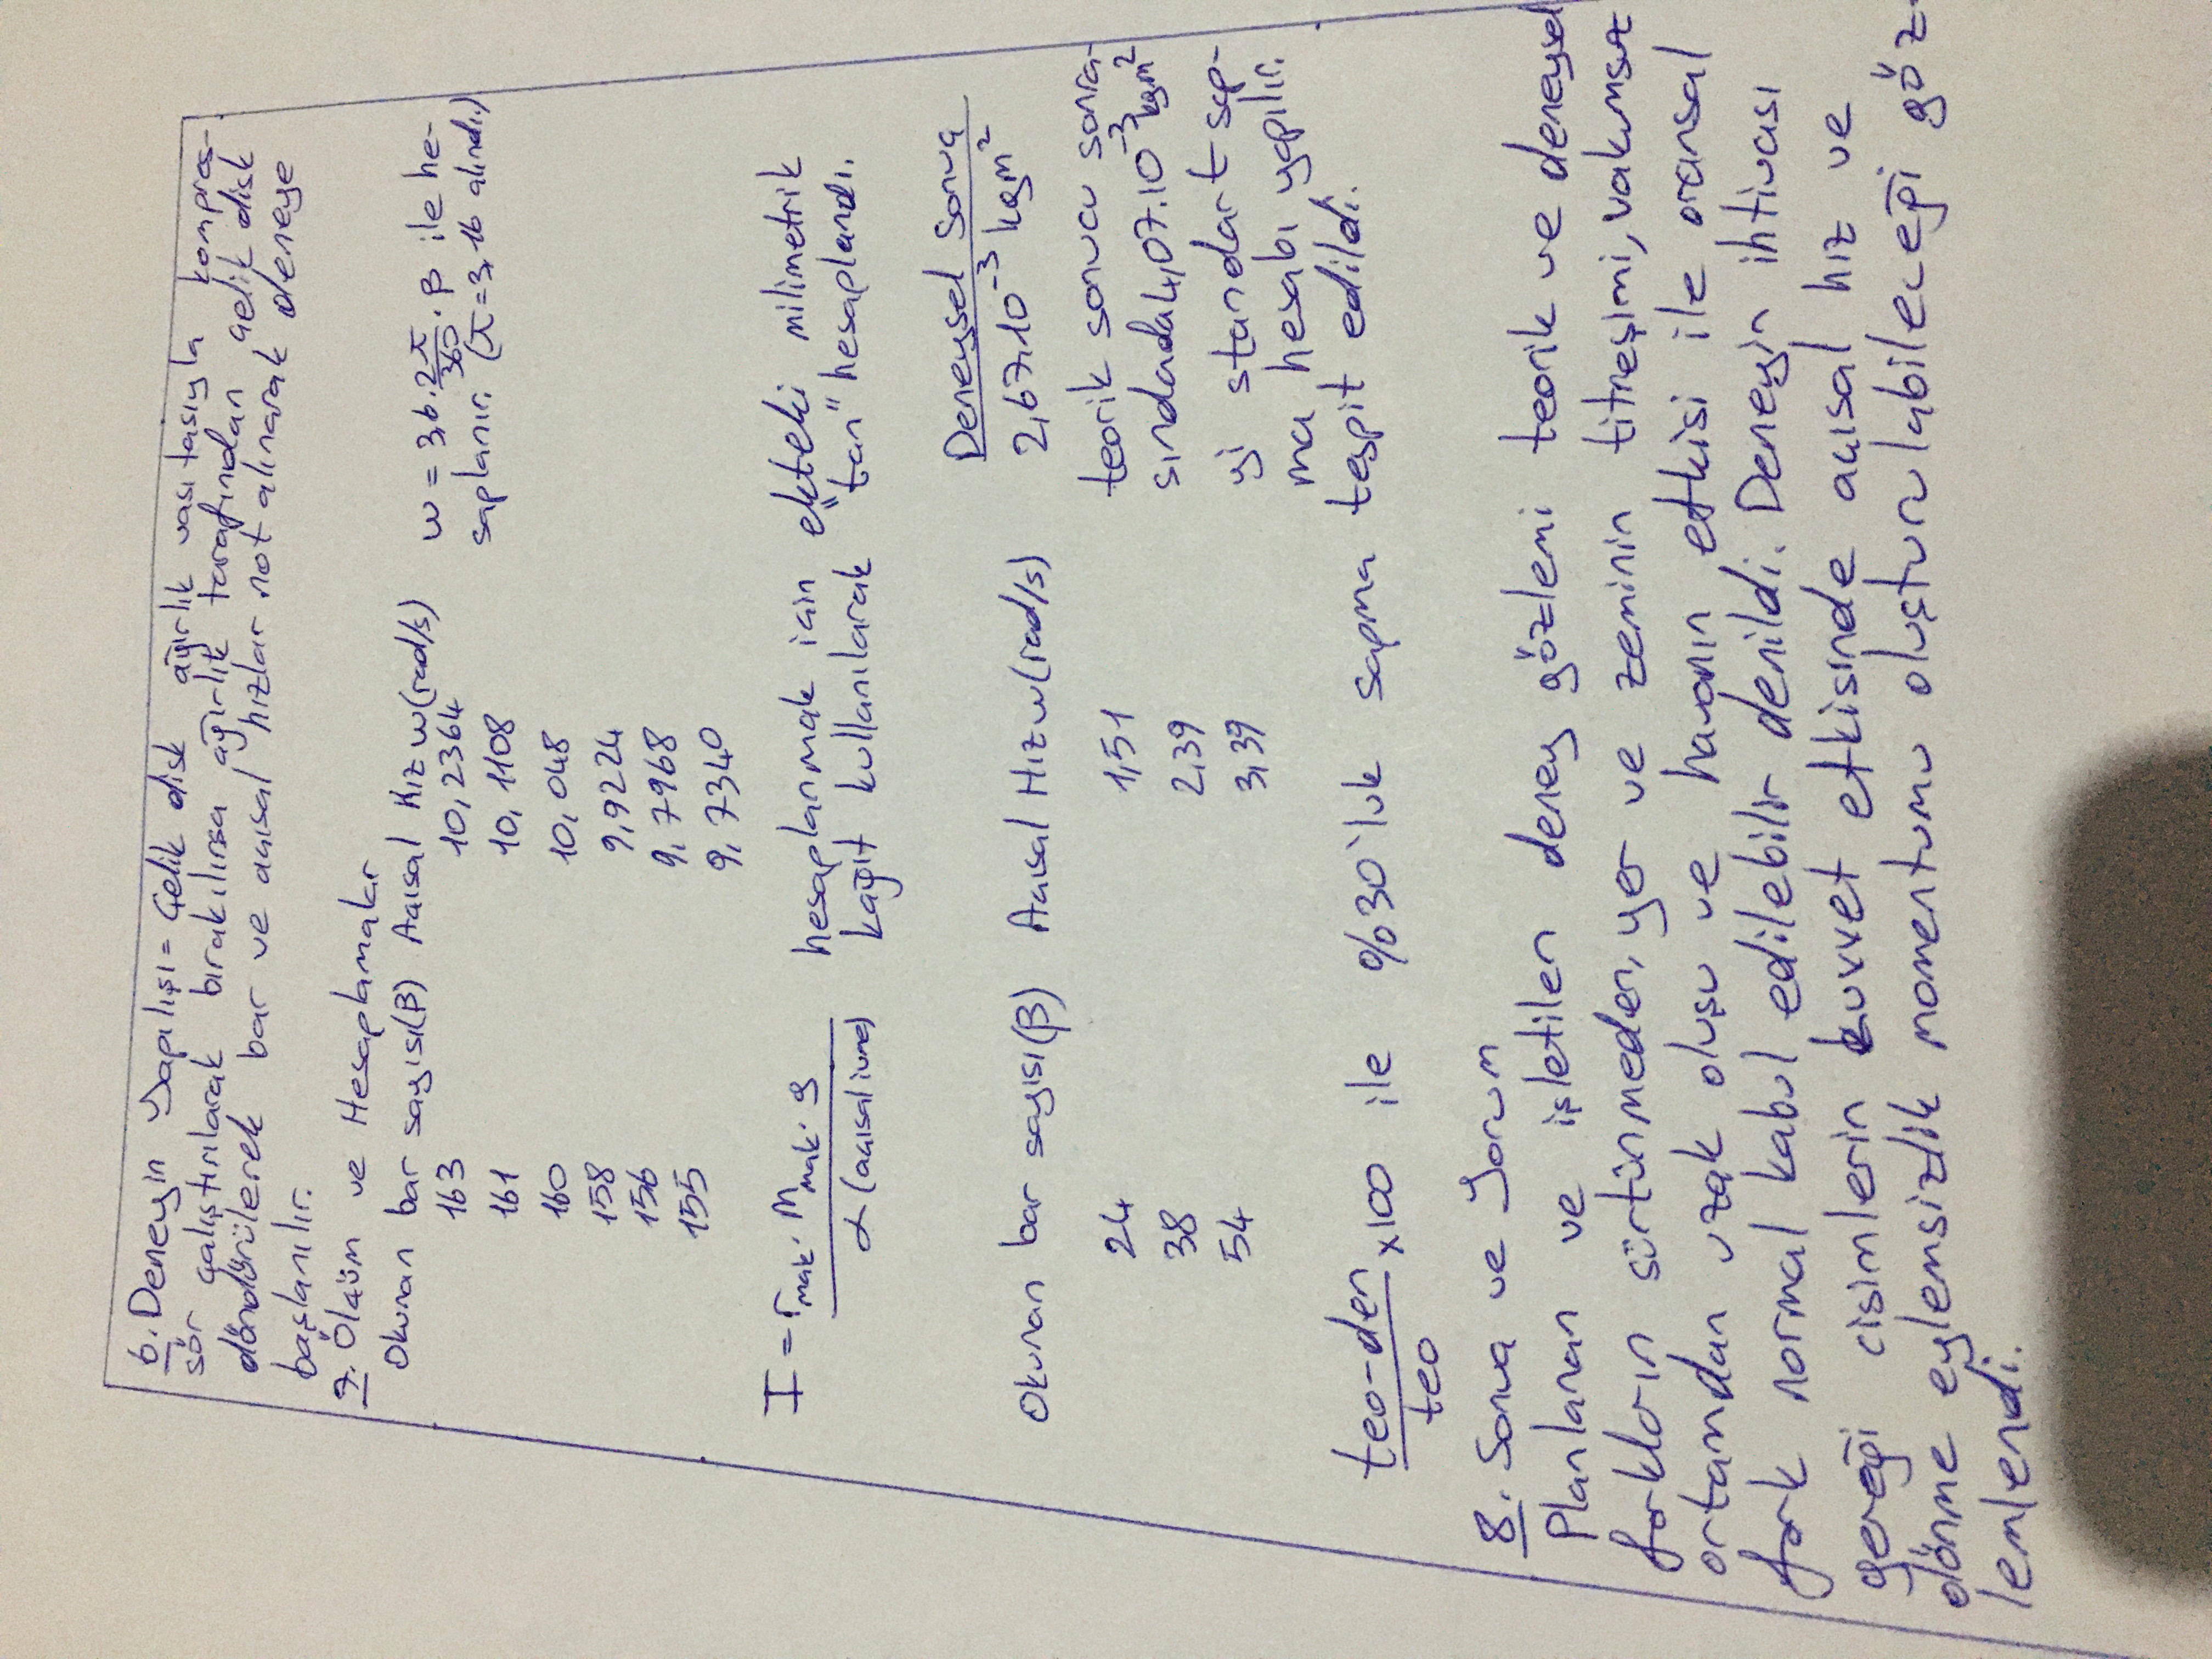 6. Deneyin Yapılışı = Çelik disk ağırlık vasıtasıyla kompres-
sör çalıştırılarak bırakılırsa ağırlık tarafından çelik disk
döndürülerek bar ve açısal hızlar not alınarak deneye
başlanılır.
7. Ölçüm ve Hesaplamalar
Okunan bar sayısı(β) Açısal Hız w(rad/s)
163 10,2364
161 10,1108
160 10,048
158 9,9224
156 9,7968
155 9,7340
w = 3,6 . 2π/360 . β ile he-
saplanır. (π=3,16 alındı.)
I = rmak. Mmak. g / α (açısal ivme)
hesaplanmak için ekteki milimetrik
kağıt kullanılarak "tan" hesaplandı.
Okunan bar sayısı(β) Açısal Hız w(rad/s)
24 1,51
38 2,39
54 3,39
Deneysel Sonuç
2,67.10⁻³ kgm²
teorik sonucu sonra-
sındada 4,07.10⁻³ kgm²
yi standart sap-
ma hesabı yapılır.
teo-den/teo x100 ile %30'luk sapma tespit edildi.
8. Sonuç ve Yorum
Planlanan ve işletilen deney gözlemi teorik ve deneysel
farkların sürtünmeden, yer ve zeminin titreşimi, vakumsuz
ortamdan uzak oluşu ve havanın etkisi ile oransal
fark normal kabul edilebilir denildi. Deneyin ihtivası
gereği cisimlerin kuvvet etkisinde açısal hız ve
dönme eylemsizlik momentumu oluşturulabileceği göz-
lemlendi.